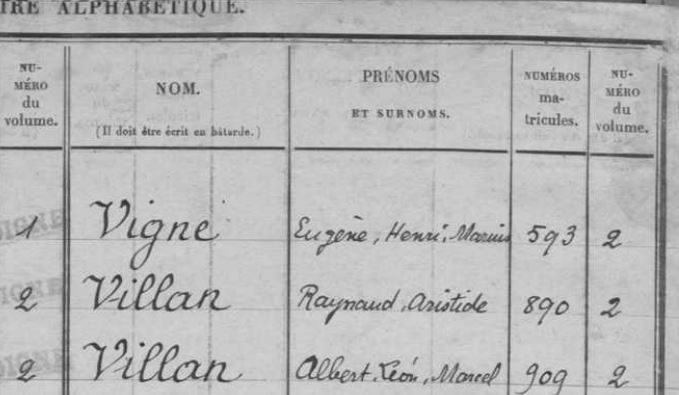 TRE ALPHABÉTIQUE.
NU-
MÉRO
du
volume.
NOM.
(Il doit être écrit en bâtarde.)
PRÉNOMS
ET SURNOMS.
NUMÉROS
ma-
tricules.
NU-
MÉRO
du
volume.
1 Vigne Eugène, Henri, Marius 593 2
2 Villan Raynaud, Aristide 890 2
2 Villan Albert, Léon, Marcel 909 2